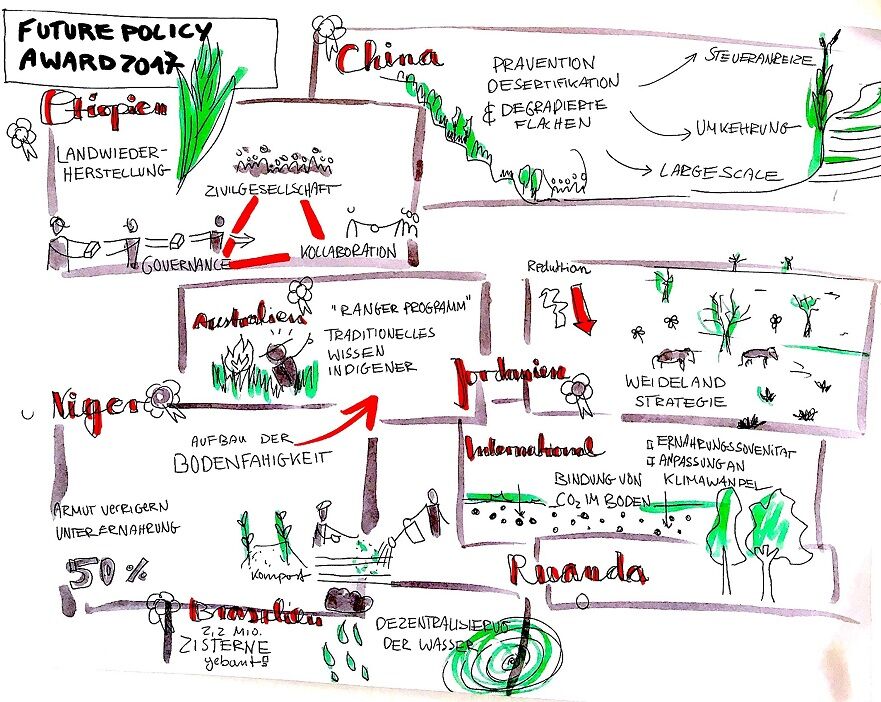 FUTURE POLICY
AWARD 2017
Etiopien
LANDWIEDER-
HERSTELLUNG
ZIVILGESELLSCHAFT
GOVERNANCE
KOLLABORATION
China
PRÄVENTION
DESERTIFIKATION
& DEGRADIERTE
FLÄCHEN
STEUERANREIZE
UMKEHRUNG
LARGE SCALE
Australien
"RANGER PROGRAMM"
TRADITIONELLES
WISSEN
INDIGENER
Reduktion
Jordanien
WEIDELAND
STRATEGIE
Niger
AUFBAU DER
BODENFÄHIGKEIT
ARMUT VERRIGERN
UNTERERNÄHRUNG
50 %
Kompost
International
BINDUNG VON
CO2 IM BODEN
ERNÄHRUNGSSOVENITÄT
ANPASSUNG AN
KLIMAWANDEL
Ruanda
Brasilien
2,2 MIO.
ZISTERNE
gebaut
DEZENTRALISIERUG
DER WASSER